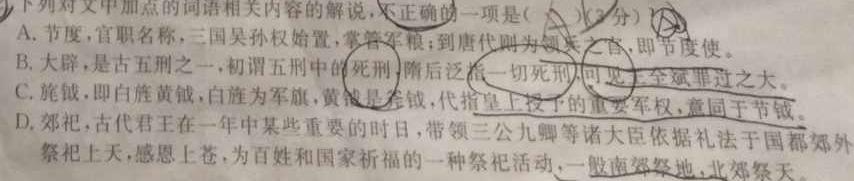 下列对文中加点的词语相关内容的解说,不正确的一项是( )(3分)
A. 节度,官职名称,三国吴孙权始置,掌管军粮;到唐代则为领兵之官,即节度使。
B. 大辟,是古五刑之一,初谓五刑中的死刑,隋后泛指一切死刑,可见王全斌罪过之大。
C. 旄钺,即白旄黄钺,白旄为军旗,黄钺是斧钺,代指皇上授予的重要军权,意同于节钺。
D. 郊祀,古代君王在一年中某些重要的时日,带领三公九卿等诸大臣依据礼法于国都郊外
祭祀上天,感恩上苍,为百姓和国家祈福的一种祭祀活动,一般南郊祭地,北郊祭天。